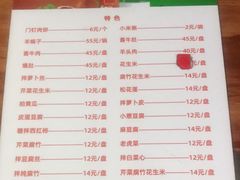 特色
门钉肉饼 6元/个
羊蝎子 55元/锅
酱牛肉 45元/盘
爆肚 45元/盘
拌萝卜苗 12元/盘
芹菜花生米 12元/盘
拍黄瓜 12元/盘
皮蛋豆腐 12元/盘
糖拌西红柿 12元/盘
芹菜腐竹 12元/盘
拌豆腐丝 12元/盘
拌炝腐竹 14元/盘
小米粥 2元/碗
酱牛肚 45元/盘
羊头肉 40元/盘
花生米
腐竹花生米 12元/盘
松花蛋 12元/盘
拌萝卜皮 12元/盘
小葱豆腐 12元/盘
麻豆腐 14元/盘
老虎菜 12元/盘
拌白菜心 12元/盘
芹菜腐竹花生米 14元/盘